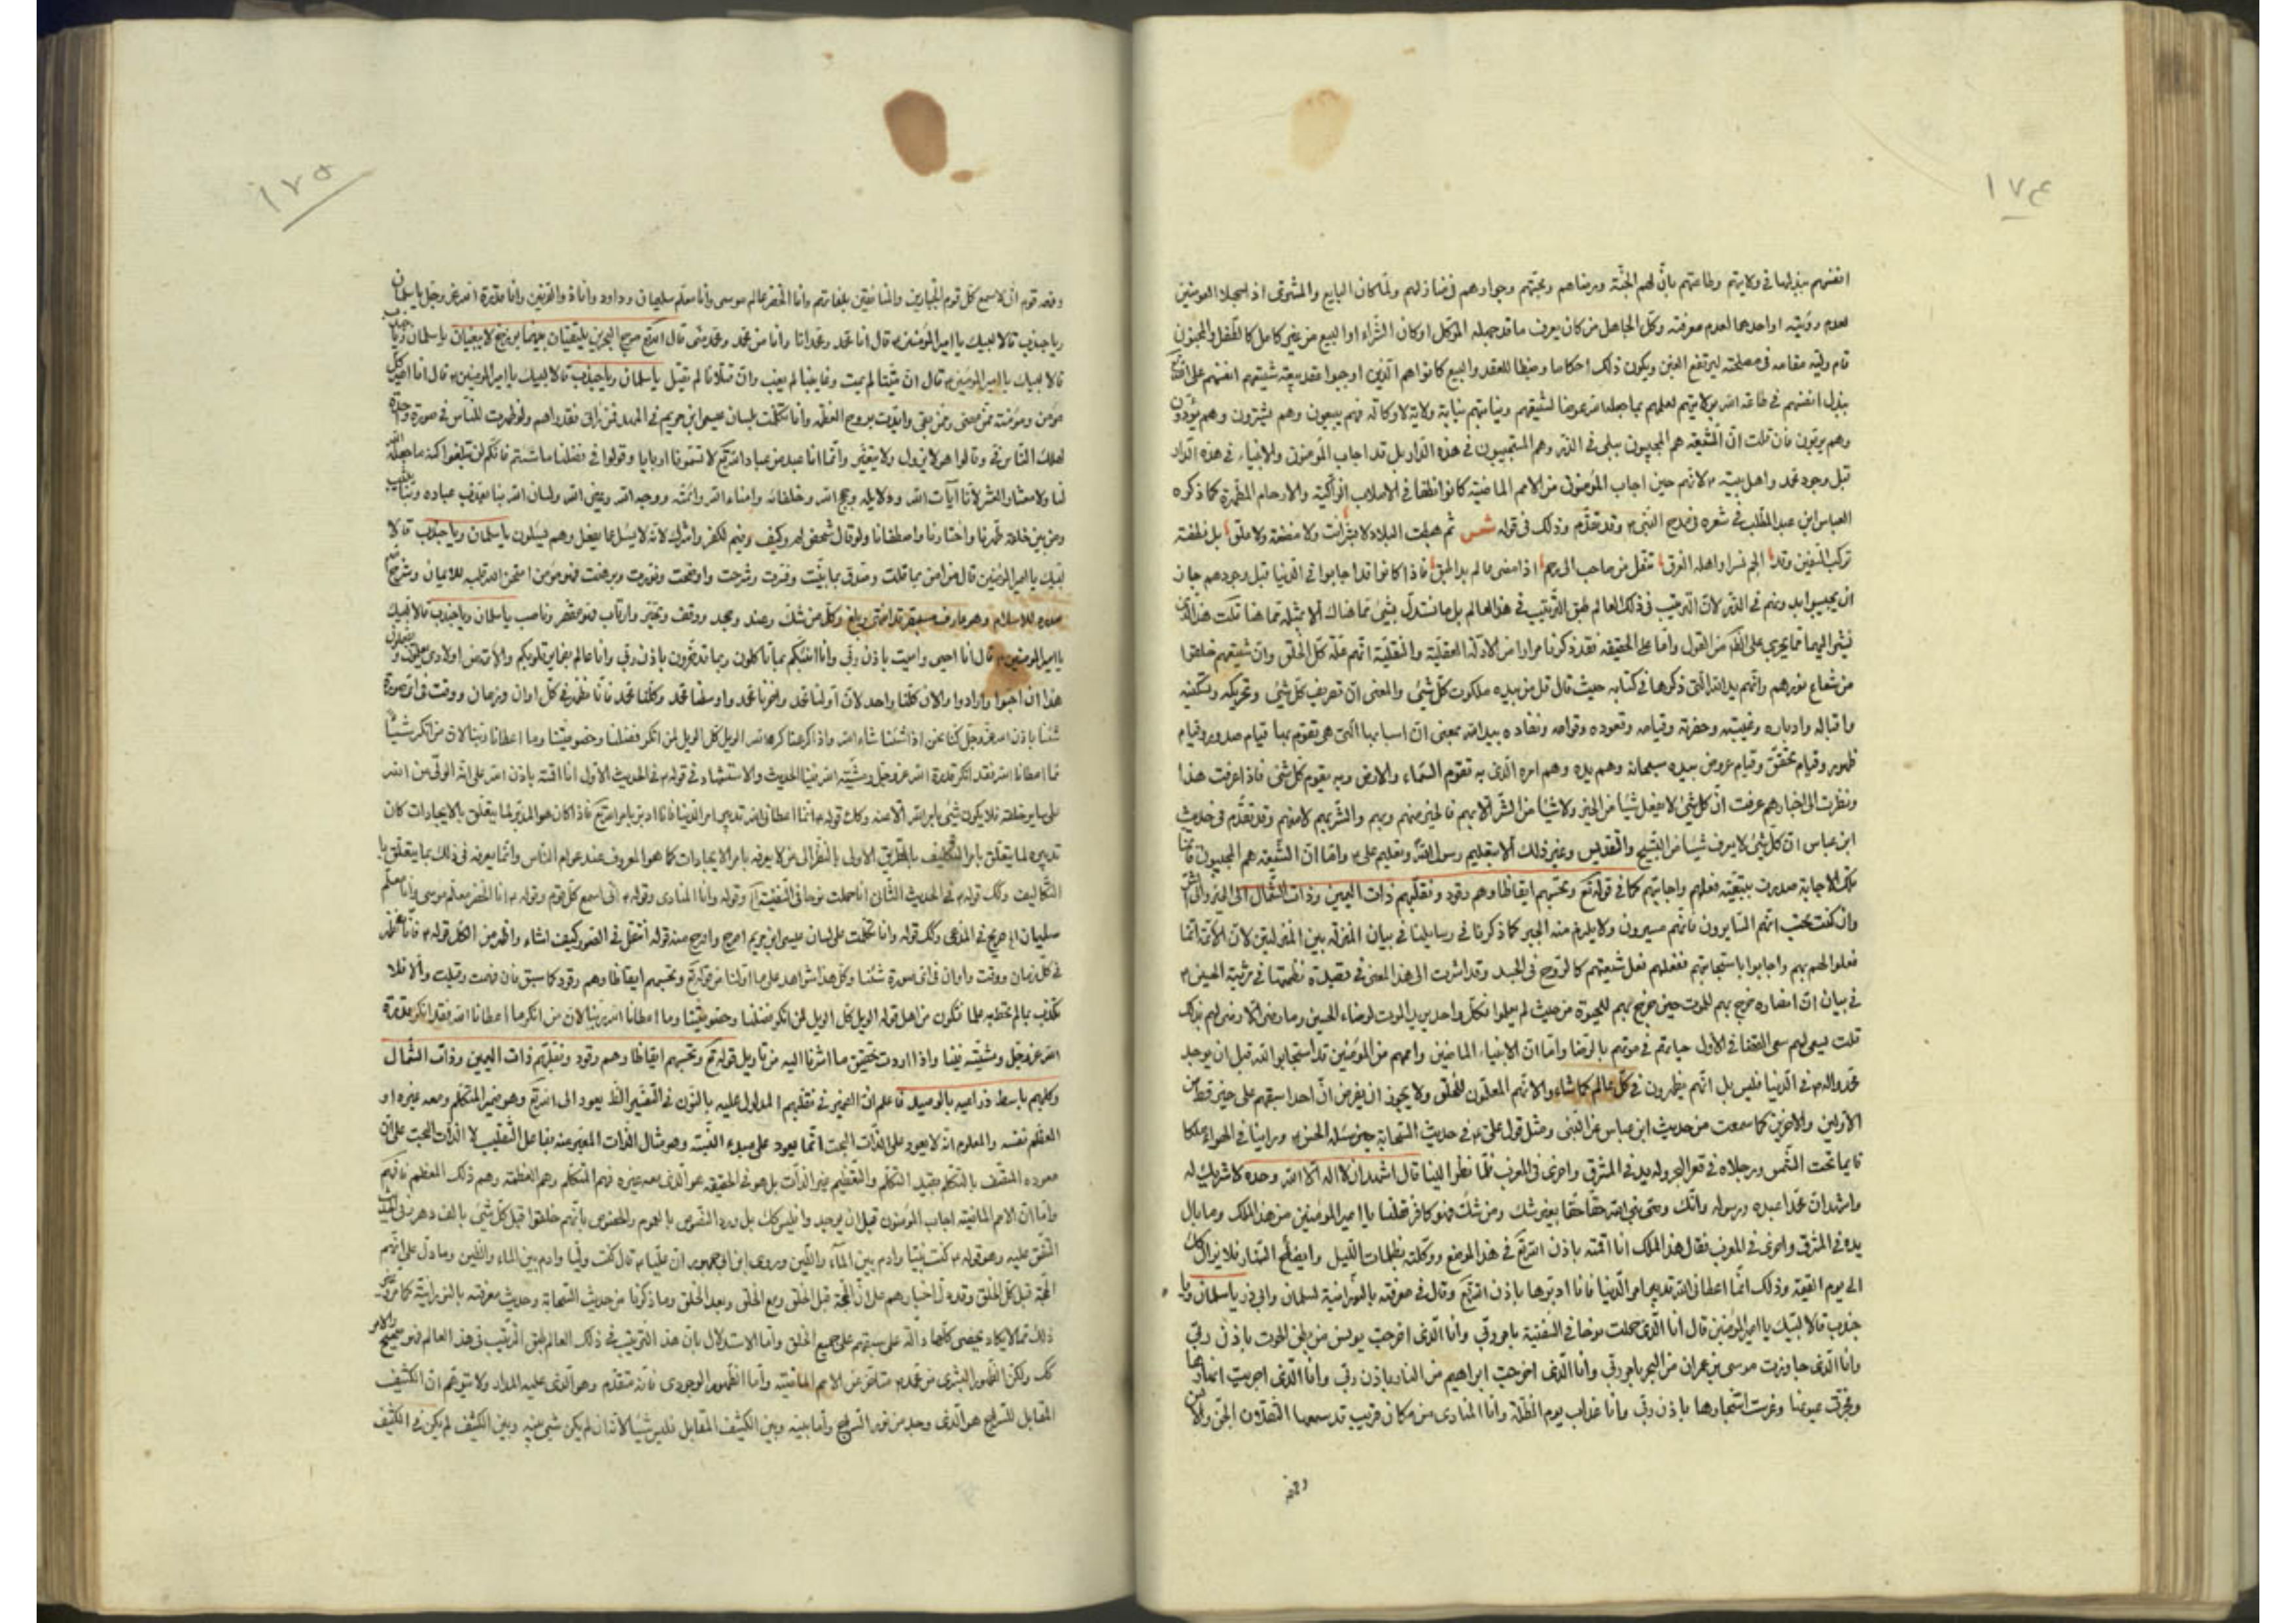 ١٧٤
انفسهم ببذلها في ولايتهم وطاعتهم بانّ لهم الجنّة ورضاهم ومحبّتهم وجوارهم في منازلهم ولمّا كان البايع والمشتري اذا جهلا العوضين
لعدم رؤيته او احدهما لعدم معرفته وكلّ الجاهل من كان يعرف ما قد جهله الموكّل او كان الشّراء او البيع من غير كامل كالطّفل والمجنون
قام وليّه مقامه في مصلحته ليرتفع الغبن ويكون ذلك احكاما وضبطا للعقد والبيع كانوا هم الذين اوجبوا عقد بيعة شيعتهم انفسهم على
بذل انفسهم في طاعة الله بولايتهم لعلمهم بما جعله الله عوضا لشيعتهم ونيابتهم نيابة ولاية لا وكالة فهم يبيعون وهم يشترون وهم يؤدّون
وهم يوفون فان قلت انّ الشّيعة هم المجيبون ببلى في الذّر وهم المستجيبون في هذه الدّار بل قد اجاب المؤمنون والانبياء في هذه الدّار
قبل وجود محمد واهل بيته ٤ لانهم حين اجاب المؤمنون من الامم الماضية كانوا نطفا في الاصلاب الزاكية والارحام المطهّرة كما ذكره
العباس ابن عبد المطّلب في شعره في مدح النبي ٤ وقد تقدّم وذلك في قوله شعر ثم هبطت البلاد لا بشر انت ولا مضغة ولا علق بل نطفة
تركب السّفين وقد الجم نسرا واهله الغرق تنقل من صالب الى رحم اذا مضى عالم بدا طبق فاذا كانوا قد اجابوا في الدّنيا قبل وجودهم جاز
ان يجيبوا قبلهم في الذّر لانّ الترتيب في ذلك العالم طبق الترتيب في هذا العالم بل ما نستدلّ بشيء ممّا هناك الّا بمثله ممّا هنا قلت هذا الذي
من القول وامّا على الحقيقة فقد ذكرنا مرارا من الادلّة العقليّة والنقليّة انهم علّة كلّ الخلق وانّ شيعتهم خلقوا
من شعاع نورهم وانهم يد الله التي ذكرها في كتابه حيث قال قل من بيده ملكوت كلّ شيء والمعنى انّ تصريف كلّ شيء وتحريكه وتسكينه
واقباله وادباره وغيبته وحضرته وقيامه وقعوده وقوامه ونفاده بيد الله بمعنى انّ اسبابها التي هي تقوم بها قيام صدور وقيام
ظهور وقيام تحقّق وقيام عروض بيده سبحانه وهم يده وهم امره الّذي به تقوم السّماء والارض وبه يقوم كلّ شيء فاذا عرفت هذا
ونظرت الى اخبارهم عرفت انّ كلّ شيء لا يفعل شيئا من الخير ولا شيئا من الشّر الّا بهم فالخير منهم وبهم والشّر بهم لا منهم وقد تقدّم في حديث
ابن عباس انّ كلّ شيء لا يعرف شيئا من التسبيح والتقديس وغير ذلك الّا بتعليم رسول الله وتعليم علي ٤ وامّا انّ الشّيعة هم المجيبون
تلك الاجابة صدرت بتبعيّة فعلهم واجابتهم كما في قوله تعالى وتحسبهم ايقاظا وهم رقود ونقلّبهم ذات اليمين وذات الشّمال
وان كنت تحسب انهم السّايرون فانهم مسيرون ولا يلزم منه الجبر كما ذكرنا في رسايلنا في بيان المنزلة بين المنزلتين لانّ الائمّة انّما
فعلوا لهم بهم واجابوا باستجابتهم ففعلهم فعل شيعتهم كالرّوح في الجسد وقد اشرت الى هذا المعنى في قصيدة نظمتها في مرثية الحسين ٤
في بيان انّ انصاره خرج بهم للموت حين خرج بهم للحيوة من حيث لم يعلموا فكلّ واحد يريد الموت لرضاء الحسين وما رضى الّا رضى لهم بذلك
قلت يسعى لهم سعى القضا في الاول حياتهم في موتهم بالرضا وامّا انّ الانبياء الماضين واممهم من المؤمنين قد استجابوا لله قبل ان يوجد
محمد واله ٤ في الدنيا فليس بل انهم يظهرون في كلّ عالم كما شاءوا لانهم المعلّمون للخلق ولا يجوز ان يفرض انّ احدا سبقهم على خير قطّ من
الاولين والاخرين كما سمعت من حديث ابن عباس عن النّبي ومثل قول علي ٤ في حديث السّحابة حين سئله الحسن ٤ وراينا في الهواء ملكا
قايما تحت الشّمس ورجلاه في قعر البحر وله يد في المشرق واخرى في المغرب فلمّا نظر الينا قال اشهد ان لا اله الّا الله وحده لا شريك له
واشهد انّ محمّدا عبده ورسوله وانّك وصيّ نبي الله حقّا حقّا بغير شك ومن شكّ فهو كافر فقلنا يا امير المؤمنين من هذا الملك وما بال
يده في المشرق واخرى في المغرب فقال هذا الملك انا اقمته باذن الله تعالى في هذا الموضع ووكلته بظلمات اللّيل واضواء النّهار فلا يزال كك
الى يوم القيمة وذلك انّما اعطاني الله تدبير امر الدّنيا فانا ادبّرها باذن الله تعالى وقال في معرفته بالنّورانية لسلمان وابي ذر يا سلمان ويا
جندب قالا لبّيك يا امير المؤمنين قال انا الّذي حملت نوحا في السّفينة بامر ربّي وانا الّذي اخرجت يونس من بطن الحوت باذن ربّي
وانا الّذي جاوزت موسى بن عمران من البحر بامر ربّي وانا الّذي اخرجت ابراهيم من النار باذن ربّي وانا الّذي اجريت انهارها
وفجّرت عيونها وغرست اشجارها باذن ربّي وانا عذاب يوم الظلّة وانا المنادي من مكان قريب قد سمعها الثقلان الجنّ والانس
١٧٥
وفهمه قوم انّي لاسمع كلّ قوم الجبارين والمنافقين بلغاتهم وانا الخضر عالم موسى وانا معلّم سليمان وداود وانا ذو القرنين وانا قدرة الله عز وجل يا سلمان
ويا جندب قالا لبيك يا امير المؤمنين ٤ قال انا محمد ومحمد انا وانا من محمد ومحمد منّي قال الله تعالى مرج البحرين يلتقيان بينهما برزخ لا يبغيان يا سلمان ويا جندب
قالا لبيك يا امير المؤمنين ٤ قال انّ ميّتنا لم يمت وغايبنا لم يغب وانّ قتلانا لم تقتل يا سلمان ويا جندب قالا لبيك يا امير المؤمنين ٤ قال انا امير كلّ
مؤمن ومؤمنة ممّن مضى وممّن بقي وايّدت بروح العظمة وانا تكلّمت بلسان عيسى ابن مريم في المهد فمن راني فقد راهم ولو ظهرت للنّاس في صورة واحدة
لهلك النّاس فيّ وقالوا هو لا يزول ولا يتغيّر وانّما انا عبد من عباد الله تعالى لا تسمّونا اربابا وقولوا في فضلنا ما شئتم فانّكم لن تبلغوا كنه ما جعله الله
لنا ولا معشار العشر لانّا آيات الله ودلايله وحجج الله وخلفائه وامناء الله وائمّته ووجه الله وعين الله ولسان الله بنا يعذّب عباده وبنا يثيب
ومن بين خلقه طهّرنا واختارنا واصطفانا ولو قال شخص لم وكيف وفيم لكفر واشرك لانّه لا يسئل عمّا يفعل وهم يسئلون يا سلمان ويا جندب قالا
لبّيك يا امير المؤمنين قال من امن بما قلت وصدّق بما بيّنت وفسّرت وشرحت واوضحت ونوّرت وبرهنت فهو مؤمن امتحن الله قلبه للايمان وشرح
صدره للاسلام وهو عارف مستبصر قد انتهى وبلغ وكلّ من شكّ وعند وجحد ووقف وتحيّر وارتاب فهو مقصّر وناصب يا سلمان ويا جندب قالا لبيك
يا امير المؤمنين ٤ قال انا احيي واميت باذن ربّي وانا انبّئكم بما تاكلون وبما تدّخرون باذن ربّي وانا عالم بضماير قلوبكم والائمة من اولادي يعلمون ويفعلون
هذا ان احبّوا وارادوا الان كلّنا واحد لانّ اولنا محمد واخرنا محمد واوسطنا محمد وكلّنا محمد فانّا نظهر في كلّ اوان وزمان ووقت في ايّ صورة
شئنا باذن الله عز وجل كنّا نحن اذا شئنا شاء الله واذا كرهنا كره الله الويل كلّ الويل لمن انكر فضلنا وخصوصيّتنا وما اعطانا ربّنا لانّ من انكر شيئا
ممّا اعطانا الله فقد انكر قدرة الله عز وجل ومشيّته الله فينا الحديث والاستشهاد في قوله ٤ في الحديث الاول انا اقمته باذن الله على انّه الوليّ من الله
على ساير خلقه فلا يكون شيء بامر الله الّا عنه وكك قوله ٤ انّما اعطاني الله تدبير امر الدّنيا فانا ادبّر بامر الله تعالى فاذا كان هو المدبّر لما يتعلّق بالايجادات كان
تدبيره لما يتعلّق بامر التكليف بالطّريق الاولى بالنّظر الى من لا يعرفه بامر الايجادات كما هو المعروف عند عوام النّاس وانّما يعرفه في ذلك بما يتعلّق با
التّكاليف وكك قوله ٤ في الحديث الثاني انا حملت نوحا في السّفينة وقوله وانا المنادي وقوله ٤ انّي اسمع كلّ قوم وقوله ٤ انا الخضر معلّم موسى وانا معلّم
سليمان الخ صريح في المدّعى وكك قوله وانا تكلّمت على لسان عيسى ابن مريم اصرح واصرح منه قوله انتقل في الصّور كيف اشاء واظهر من الكلّ قوله ٤ فانّا نظهر
في كلّ زمان ووقت واوان في ايّ صورة شئنا وكلّ هذا شواهد على ما اوّلنا من قوله تعالى وتحسبهم ايقاظا وهم رقود كما سبق فان فهمت وقبلت والّا فلا
تكذّب بما لم تحط به علما فتكون من اهل قوله الويل كلّ الويل لمن انكر فضلنا وخصوصيّتنا وما اعطانا الله ربّنا لانّ من انكر ما اعطانا الله فقد انكر قدرة
الله عز وجل ومشيّته فينا واذا اردت تحقيق ما اشرنا اليه من تاويل قوله تعالى وتحسبهم ايقاظا وهم رقود ونقلّبهم ذات اليمين وذات الشّمال
وكلبهم باسط ذراعيه بالوصيد فاعلم انّ الضمير في نقلّبهم المدلول عليه بالنّون في التّفسير الظّ يعود الى الله تعالى وهو ضمير المتكلّم ومعه غيره او
المعظّم نفسه والمعلوم انّه لا يعود على الذّات البحت انّما يعود على مبدء النّسبة وهو مثال الذّات المعبّر عنه بفاعل التّقليب لا الذّات البحت على انّ
معوده المتّصف بالتّكلّم بقيد التكلّم والتّعظيم غير الذّات بل هو في الحقيقة هو الّذي معه غيره فهم المتكلّم وهم العظمة وهم ذلك المعظّم
وامّا انّ الامم الماضية اجاب المؤمنون قبل ان يوجدوا فليس كك بل ورد النّصوص بالعموم والخصوص بانّهم خلقوا قبل كلّ شيء بالف دهر
المتّفق عليه وهو قوله ٤ كنت نبيّا وادم بين الماء والطّين وروى ابن ابي جمهور انّ عليّا ٤ قال كنت وليّا وادم بين الماء والطين وما دلّ على انّهم
الحجّة قبل كلّ الخلق وقد دلّ اخبارهم على انّ الحجّة قبل الخلق ومع الخلق وبعد الخلق وما ذكرنا من حديث السّحابة وحديث معرفته بالنورانيّة كما مرّ
ذلك ممّا لا يكاد يحصى كلّها دالّة على سبقهم على جميع الخلق وامّا الاستدلال بانّ هذا التّرتيب في ذلك العالم طبق التّرتيب في هذا العالم فهو صحيح والامر
كك ولكن الظّهور البشري من محمد ٤ متاخّر عن الامم الماضية وامّا الظّهور الوجودي فانّه متقدّم وهو الّذي عليه المدار ولا تتوهّم انّ الكثيف
المقابل للسّراج هو الّذي وجد من نور السّراج وامّا بينه وبين الكثيف المقابل فليس شيئا لانّه ان لم يكن شيء بينه وبين الكثيف لم يكن في الكثيف